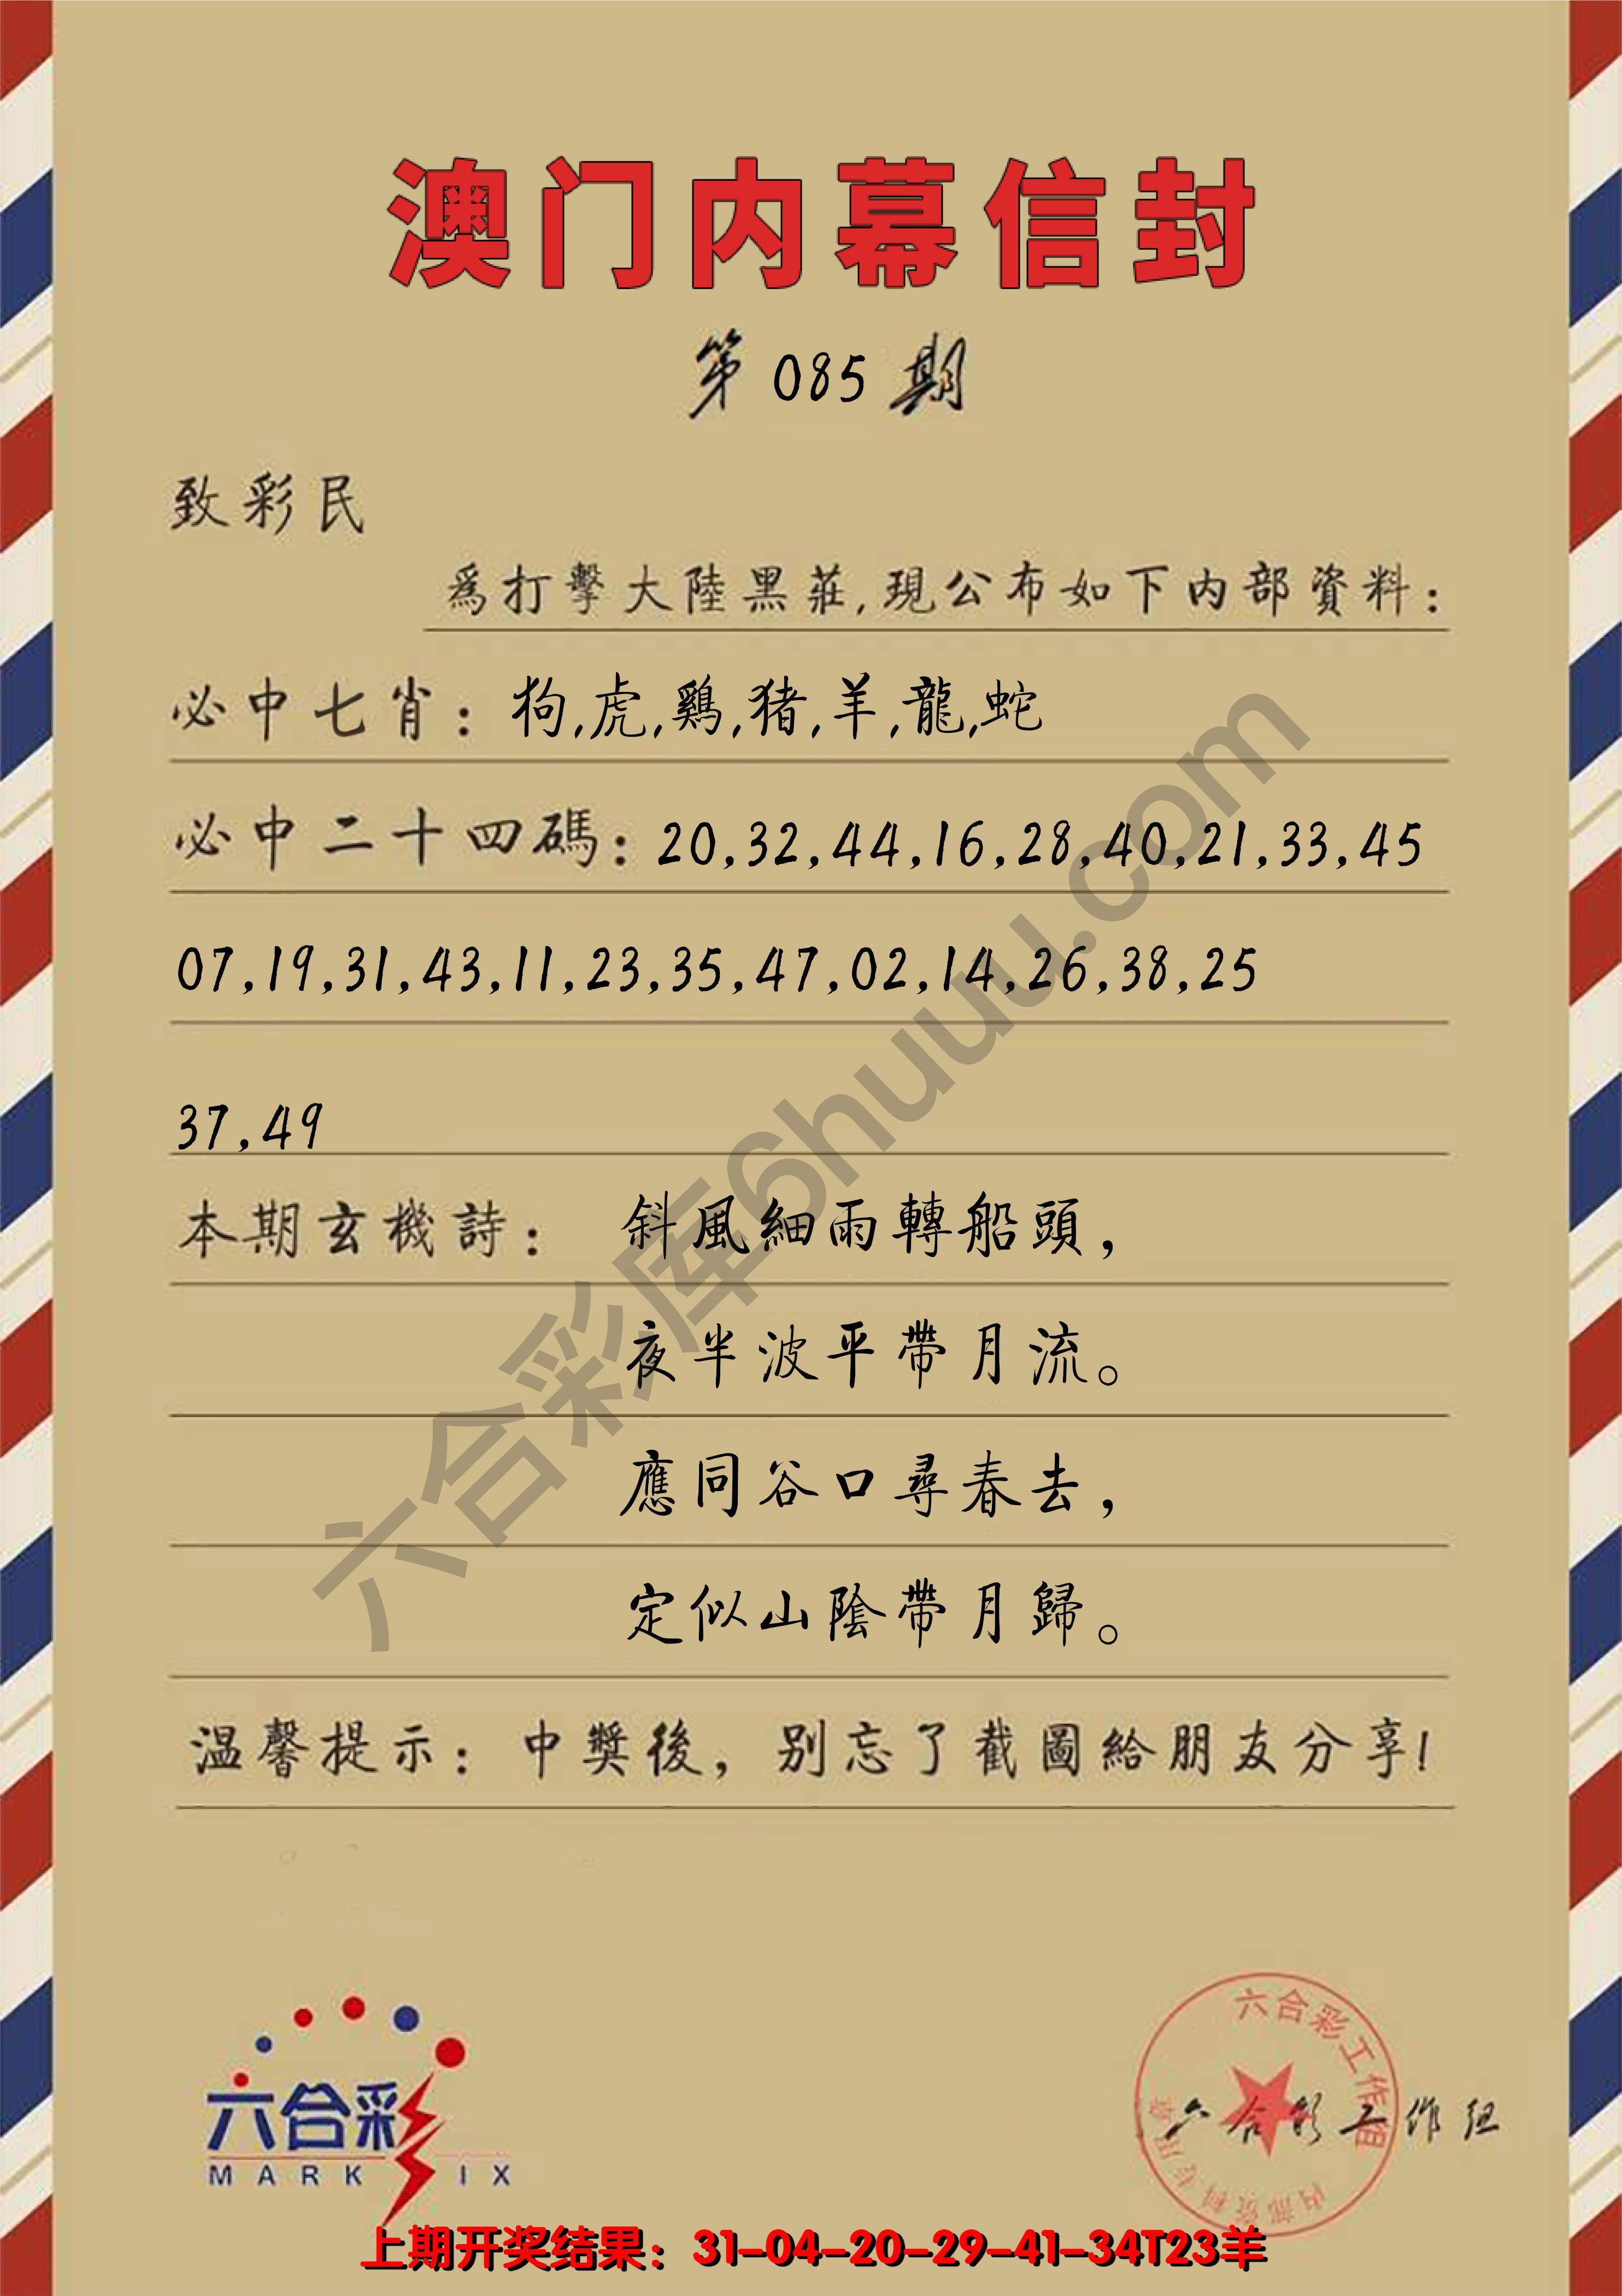 澳门内幕信封
第085期
致彩民
爲打擊大陸黑莊,現公布如下内部資料:
必中七肖: 狗,虎,鷄,猪,羊,龍,蛇
必中二十四碼: 20,32,44,16,28,40,21,33,45
07,19,31,43,11,23,35,47,02,14,26,38,25
37,49
本期玄機詩: 斜風細雨轉船頭,
夜半波平帶月流。
應同谷口尋春去,
定似山陰帶月歸。
温馨提示: 中獎後, 别忘了截圖給朋友分享!
六合彩库6huuu.com
六合彩
MARK IX
六合彩工作组
内部资料专用章
六合彩工作组
上期开奖结果: 31-04-20-29-41-34T23羊